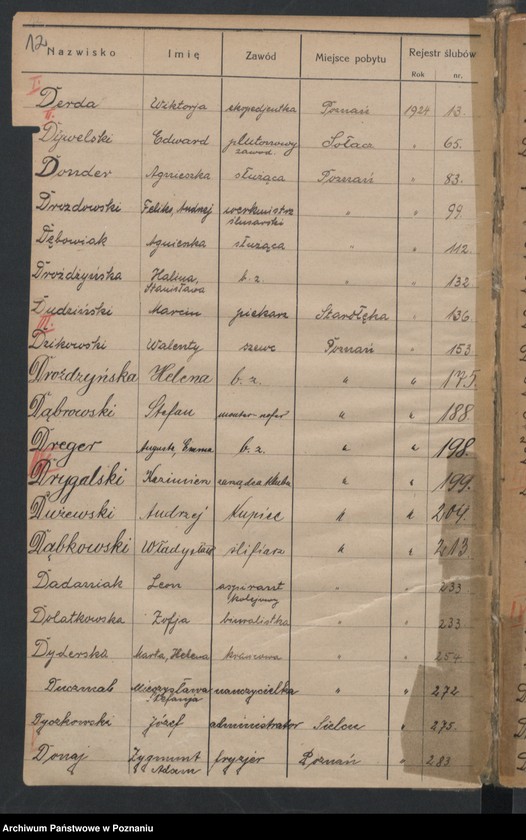 12
Nazwisko Imię Zawód Miejsce pobytu Rejestr ślubów
Rok nr.
I.
Derda Wiktorja ekspedjentka Poznań 1924 13.
II.
Dywelski Edward plutonowy zawod. Sołacz " 65.
Donder Agnieszka służąca Poznań " 83.
Drozdowski Feliks, Andrzej werkmistrz ślusarski " " 99
Dębowiak Agnieszka służąca " " 112
Drożdżyńska Halina, Stanisława b. z. " " 132
Dudziński Marcin piekarz Starołęka " 136
III.
Dzikowski Walenty szewc Poznań " 153
Drożdzyńska Helena b. z. " " 175.
Dąbrowski Stefan monter-szofer " " 188.
Dreger Augusta, Emma b. z. " " 198.
Drygalski Kazimierz zarządca klubu " " 199.
Dużewski Andrzej kupiec " " 209.
Dąbkowski Władysław ślifiarz " " 213.
Dadaniak Leon aspirant kolejowy " " 233
Dolatkowska Zofja biuralistka " " 233
Dyderska Marta, Helena krawcowa " " 254
Duczmal Mieczysława Stefanja nauczycielka " " 272
Dyczkowski Józef administrator Sielce " 275.
Donaj Zygmunt Adam fryzjer Poznań " 283
Archiwum Państwowe w Poznaniu